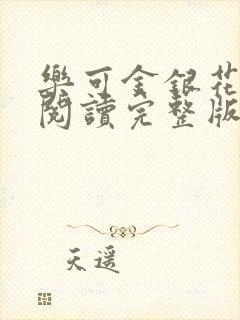 樂可金銀花
閱讀完整版
天遥